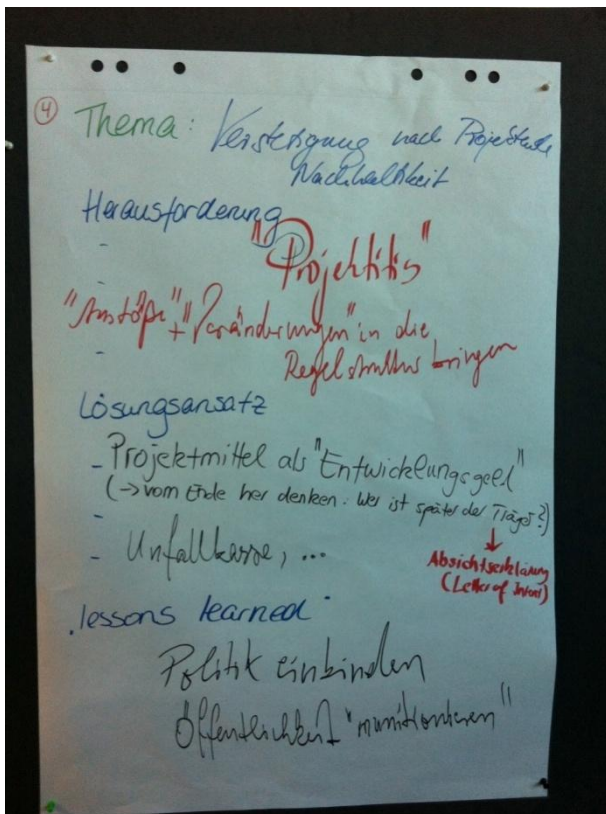 ④ Thema: Verstetigung nach Projektende
Nachhaltigkeit
Herausforderung
- "Projektitis"
-
"Anstöße" + "Veränderungen" in die
- Regelstruktur bringen
Lösungsansatz
- Projektmittel als "Entwicklungsgeld"
(→ vom Ende her denken: Wer ist später der Träger?)
-
↓
- Unfallkasse, ...
Absichtserklärung
(Letter of Intent)
lessons learned
Politik einbinden
Öffentlichkeit "munitionieren"